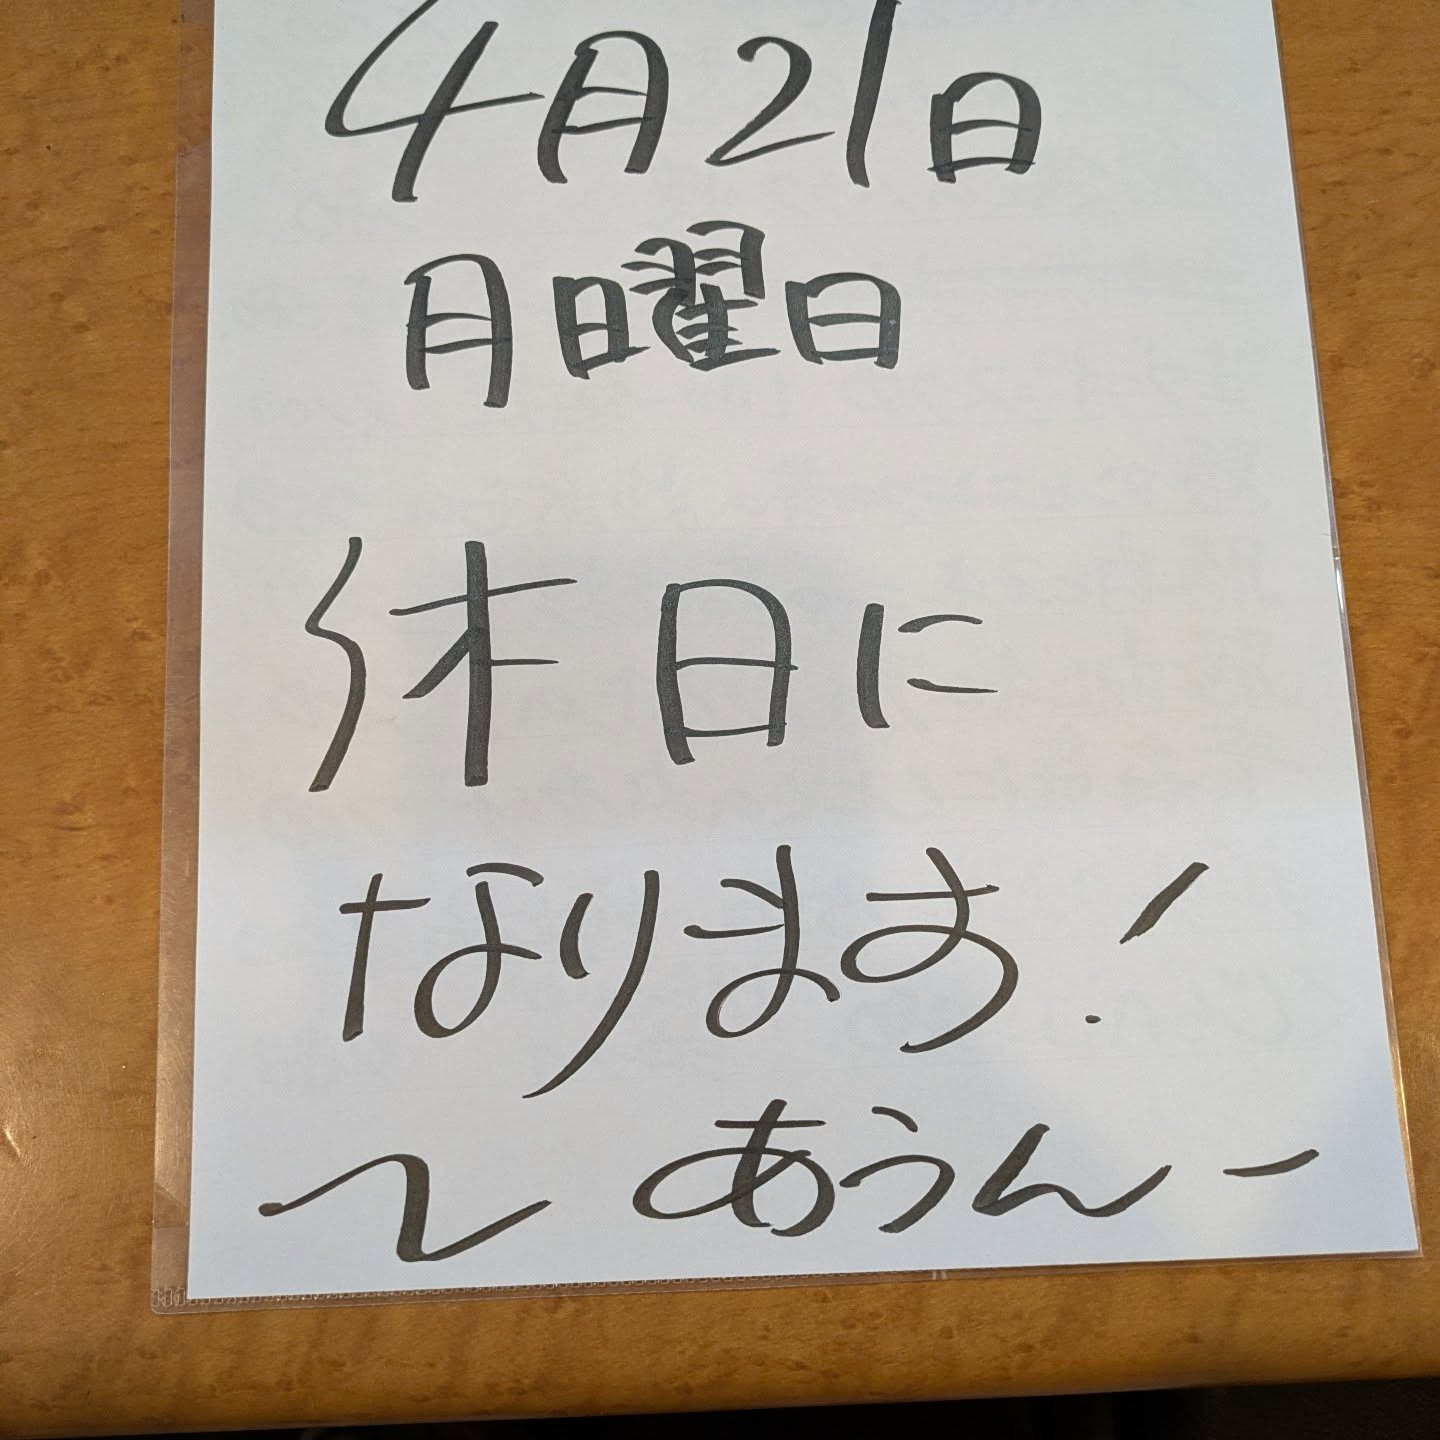 4月21日
月曜日
休日に
なります!
〜 あうんー